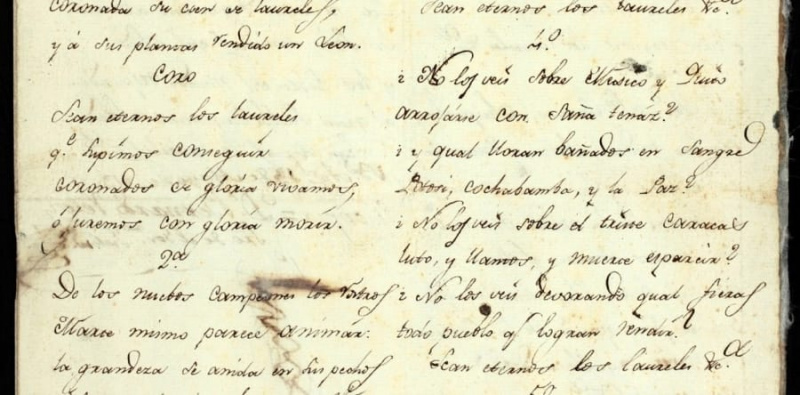 coronada su cien de laureles,
y á sus plantas rendido un Leon.
Coro
Sean eternos los laureles
q.e supimos conseguir
coronados de gloria vivamos,
ó juremos con gloria morir.
2.a
De los nuebos campeones los rostros
Marte mismo parece animár.
la grandeza se anida en sus pechos
Sean eternos los laureles &c.a
4.o
¿ No los veis sobre Mexico y Quito
arrojarse con saña tenáz?
¿ y qual lloran bañados en sangre
Potosi, cochabamba, y la Paz?
¿ No los veis sobre el triste caracas
luto, y llantos, y muerte esparcir?
¿ No los veis devorando qual fieras
todo pueblo q.e logran rendir?
Sean eternos los laureles &c.a